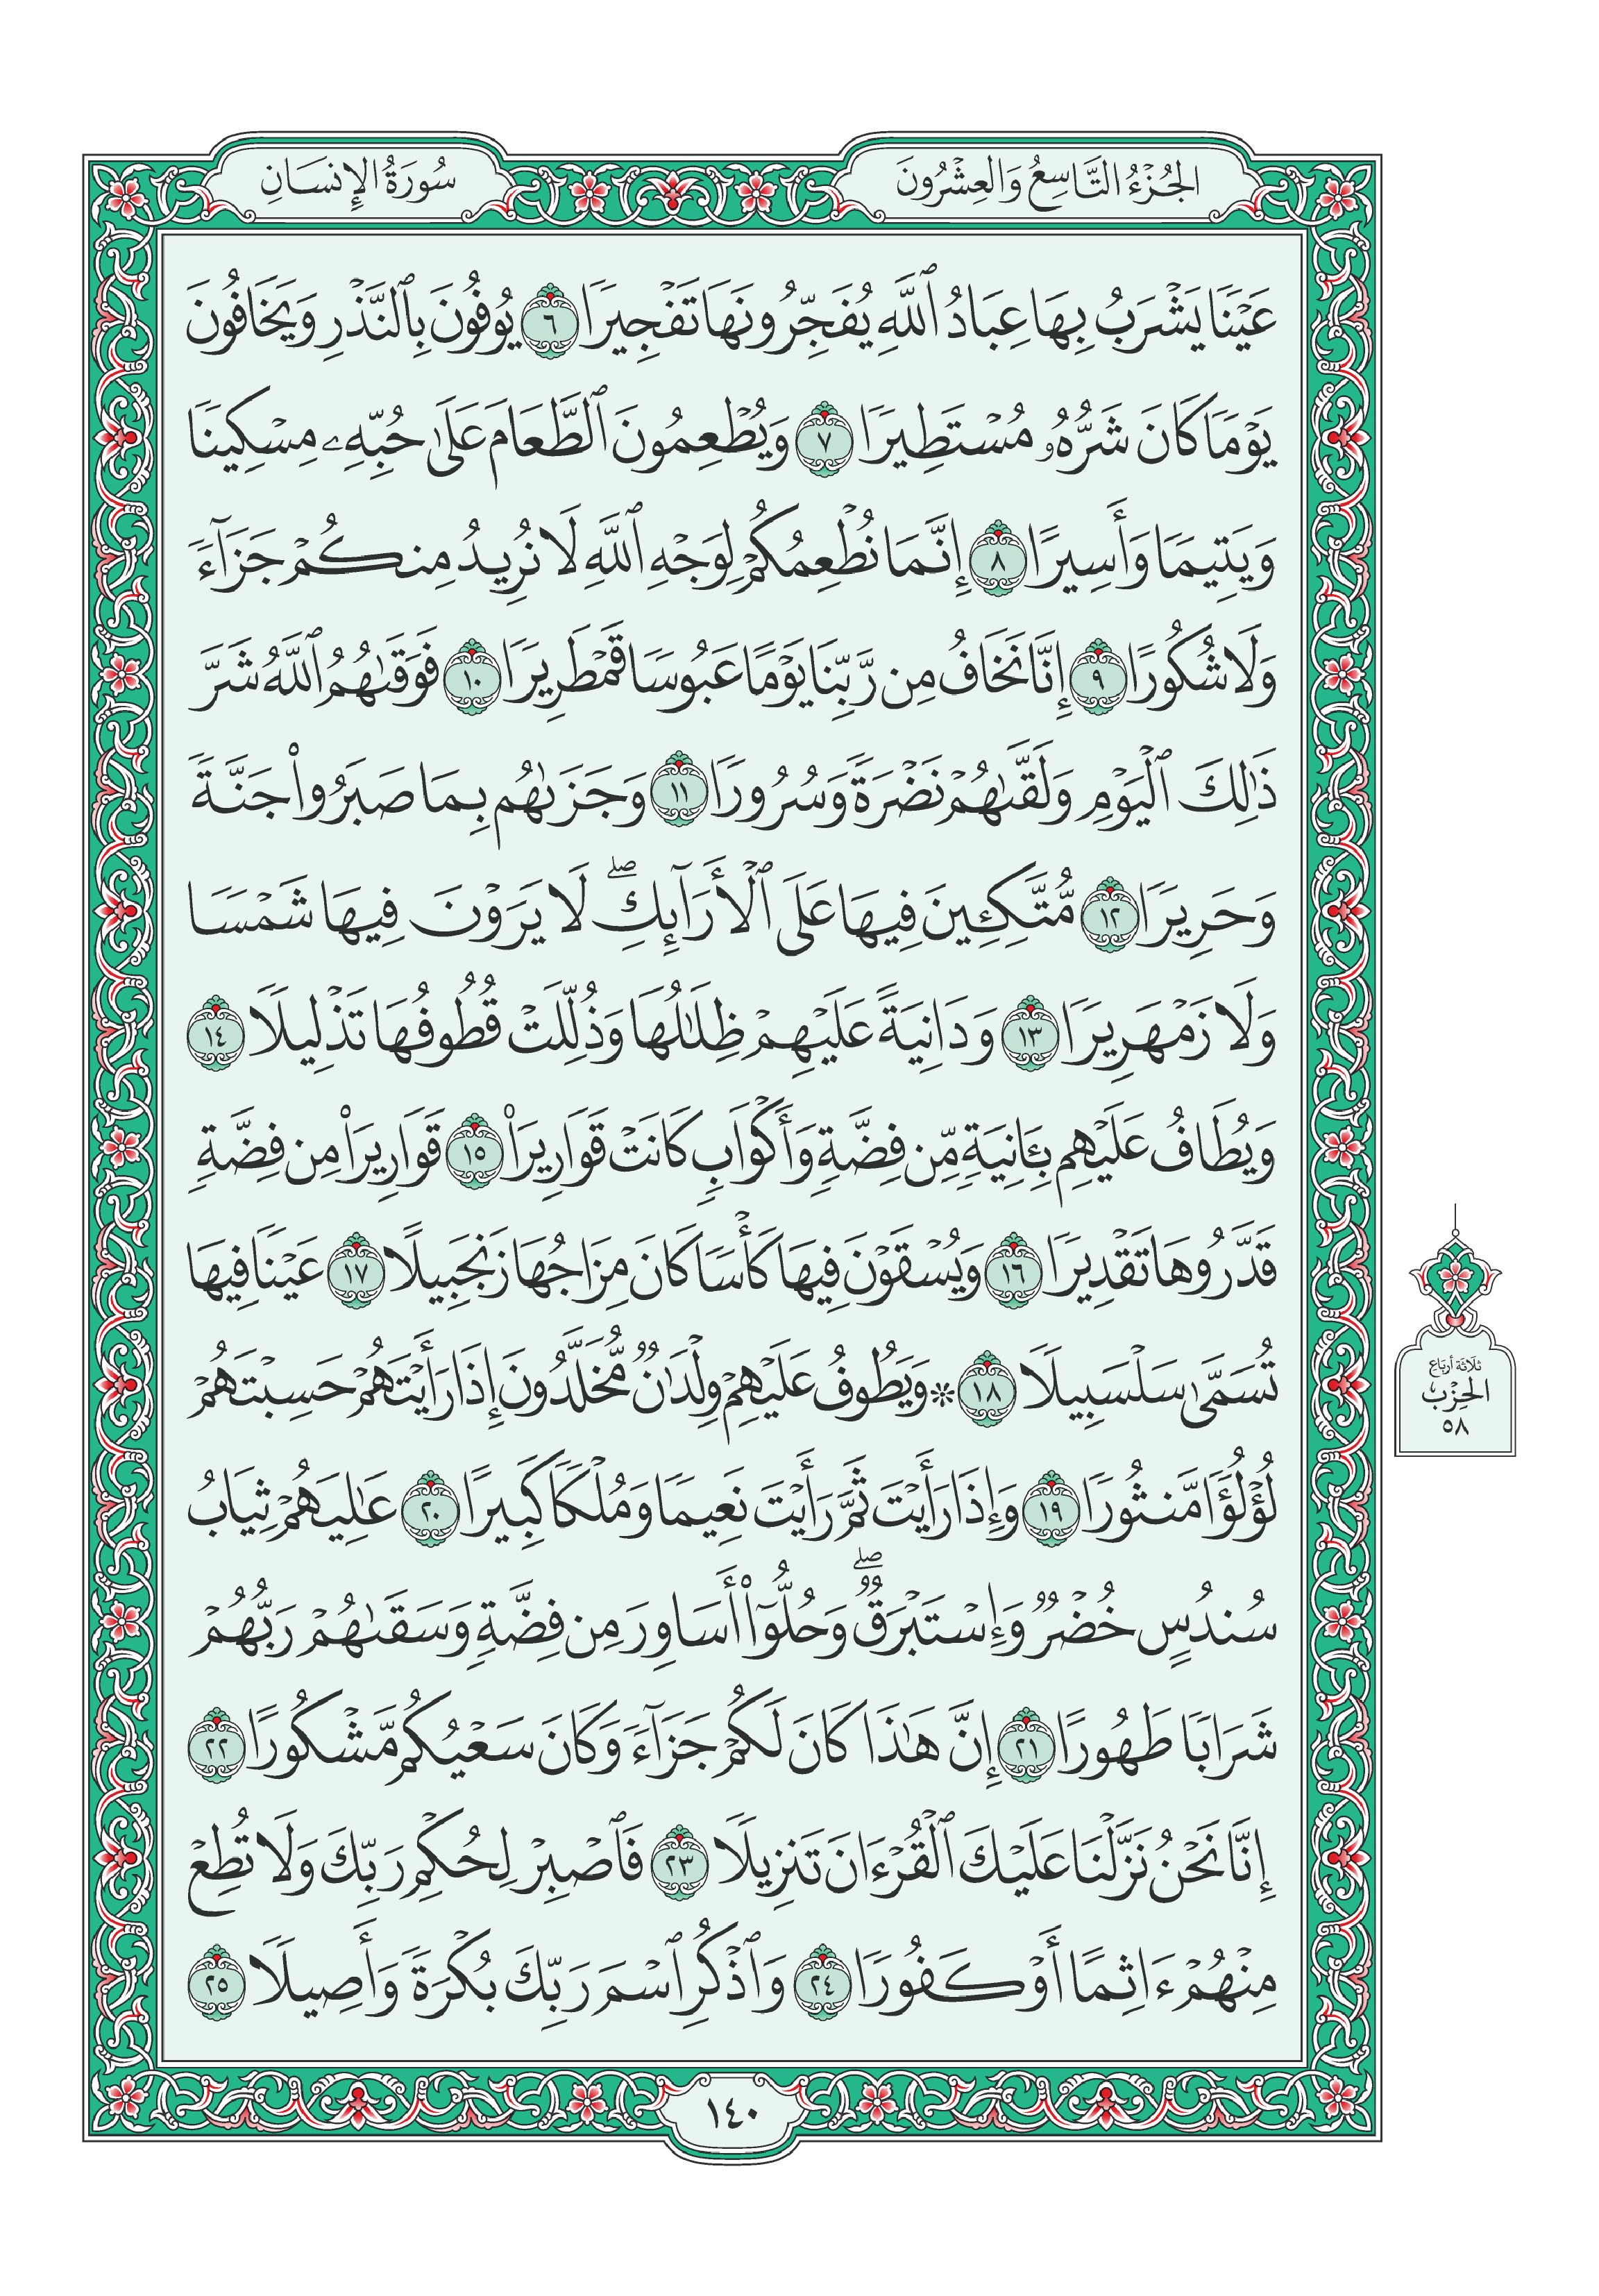 الجُزْءُ التَّاسِعُ وَالعِشْرُونَ
سُورَةُ الإِنسَانِ
عَيْنٗا يَشۡرَبُ بِهَا عِبَادُ ٱللَّهِ يُفَجِّرُونَهَا تَفۡجِيرٗا ٦ يُوفُونَ بِٱلنَّذۡرِ وَيَخَافُونَ
يَوۡمٗا كَانَ شَرُّهُۥ مُسۡتَطِيرٗا ٧ وَيُطۡعِمُونَ ٱلطَّعَامَ عَلَىٰ حُبِّهِۦ مِسۡكِينٗا
وَيَتِيمٗا وَأَسِيرًا ٨ إِنَّمَا نُطۡعِمُكُمۡ لِوَجۡهِ ٱللَّهِ لَا نُرِيدُ مِنكُمۡ جَزَآءٗ
وَلَا شُكُورًا ٩ إِنَّا نَخَافُ مِن رَّبِّنَا يَوۡمًا عَبُوسٗا قَمۡطَرِيرٗا ١٠ فَوَقَىٰهُمُ ٱللَّهُ شَرَّ
ذَٰلِكَ ٱلۡيَوۡمِ وَلَقَّىٰهُمۡ نَضۡرَةٗ وَسُرُورٗا ١١ وَجَزَىٰهُم بِمَا صَبَرُواْ جَنَّةٗ
وَحَرِيرٗا ١٢ مُّتَّكِـِٔينَ فِيهَا عَلَى ٱلۡأَرَآئِكِۖ لَا يَرَوۡنَ فِيهَا شَمۡسٗا
وَلَا زَمۡهَرِيرٗا ١٣ وَدَانِيَةً عَلَيۡهِمۡ ظِلَٰلُهَا وَذُلِّلَتۡ قُطُوفُهَا تَذۡلِيلٗا ١٤
وَيُطَافُ عَلَيۡهِم بِـَٔانِيَةٖ مِّن فِضَّةٖ وَأَكۡوَابٖ كَانَتۡ قَوَارِيرَا۠ ١٥ قَوَارِيرَاْ مِن فِضَّةٖ
قَدَّرُوهَا تَقۡدِيرٗا ١٦ وَيُسۡقَوۡنَ فِيهَا كَأۡسٗا كَانَ مِزَاجُهَا زَنجَبِيلًا ١٧ عَيۡنٗا فِيهَا
تُسَمَّىٰ سَلۡسَبِيلٗا ١٨ ۞ وَيَطُوفُ عَلَيۡهِمۡ وِلۡدَٰنٞ مُّخَلَّدُونَ إِذَا رَأَيۡتَهُمۡ حَسِبۡتَهُمۡ
لُؤۡلُؤٗا مَّنثُورٗا ١٩ وَإِذَا رَأَيۡتَ ثَمَّ رَأَيۡتَ نَعِيمٗا وَمُلۡكٗا كَبِيرًا ٢٠ عَٰلِيَهُمۡ ثِيَابُ
سُندُسٍ خُضۡرٞ وَإِسۡتَبۡرَقٞۖ وَحُلُّوٓاْ أَسَاوِرَ مِن فِضَّةٖ وَسَقَىٰهُمۡ رَبُّهُمۡ
شَرَابٗا طَهُورًا ٢١ إِنَّ هَٰذَا كَانَ لَكُمۡ جَزَآءٗ وَكَانَ سَعۡيُكُم مَّشۡكُورًا ٢٢
إِنَّا نَحۡنُ نَزَّلۡنَا عَلَيۡكَ ٱلۡقُرۡءَانَ تَنزِيلٗا ٢٣ فَٱصۡبِرۡ لِحُكۡمِ رَبِّكَ وَلَا تُطِعۡ
مِنۡهُمۡ ءَاثِمًا أَوۡ كَفُورٗا ٢٤ وَٱذۡكُرِ ٱسۡمَ رَبِّكَ بُكۡرَةٗ وَأَصِيلٗا ٢٥
ثلاثة أرباع
الحِزْب
٥٨
١٤٠